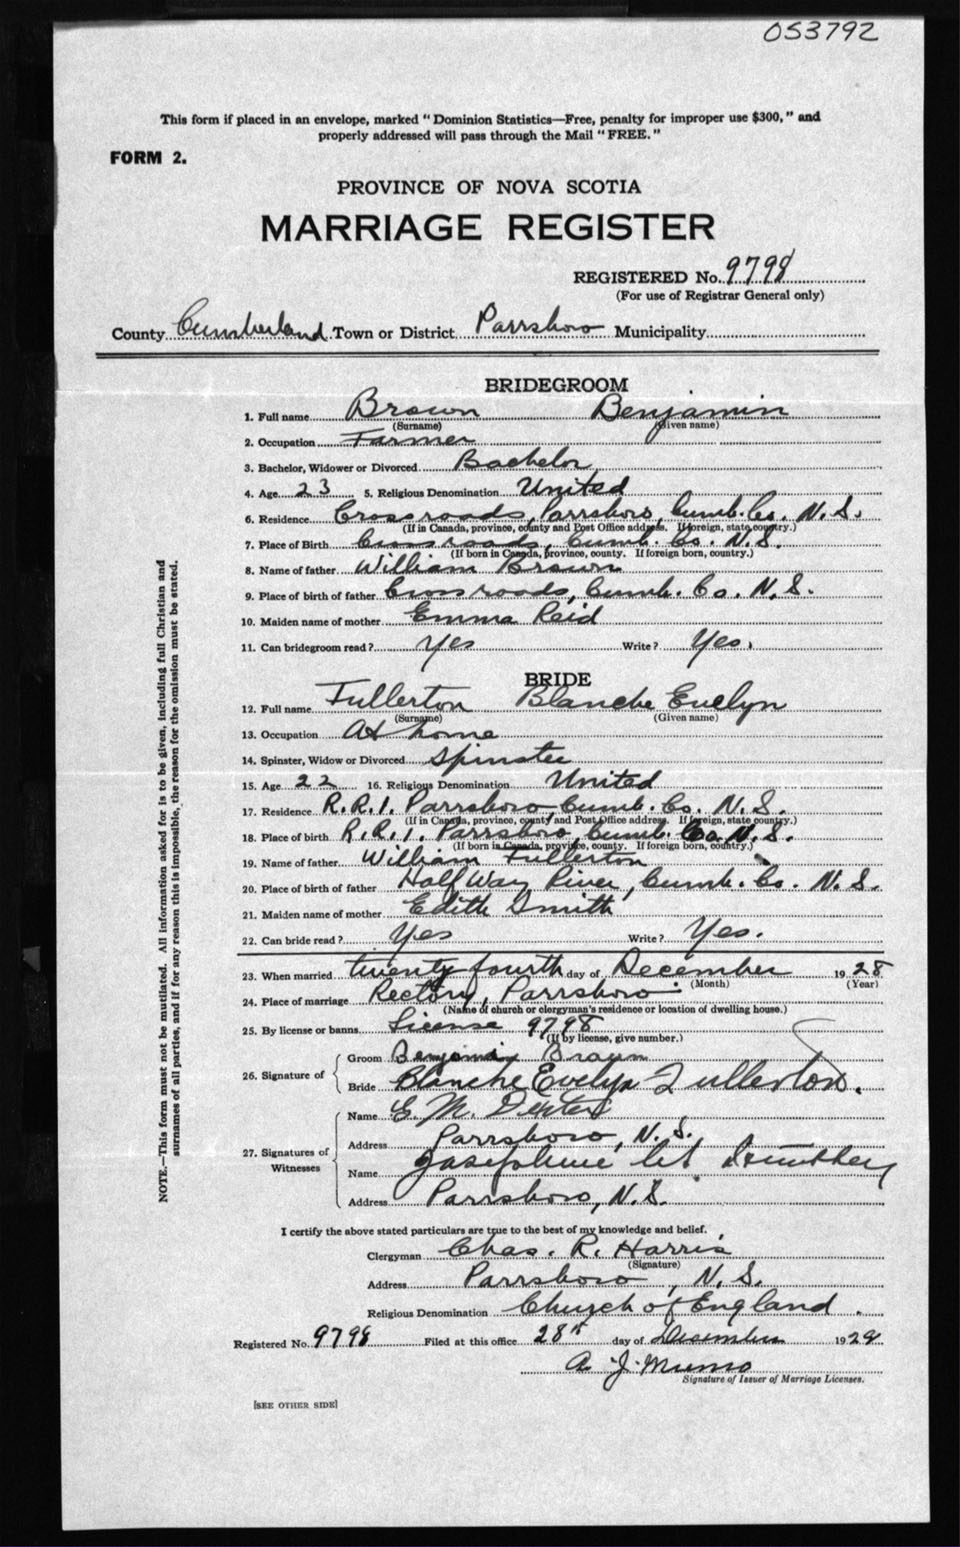 053792
This form if placed in an envelope, marked "Dominion Statistics—Free, penalty for improper use $300," and
properly addressed will pass through the Mail "FREE."
FORM 2.
PROVINCE OF NOVA SCOTIA
MARRIAGE REGISTER
REGISTERED No. 9798
(For use of Registrar General only)
County Cumberland Town or District Parrsboro Municipality
BRIDEGROOM
1. Full name Brown Benjamin
(Surname) (Given name)
2. Occupation Farmer
3. Bachelor, Widower or Divorced Bachelor
4. Age 23 5. Religious Denomination United
6. Residence Crossroads, Parrsboro, Cumb. Co. N.S.
(If in Canada, province, county and Post Office address. If foreign, state country.)
7. Place of Birth Crossroads, Cumb. Co. N.S.
(If born in Canada, province, county. If foreign born, country.)
8. Name of father William Brown
9. Place of birth of father Crossroads, Cumb. Co. N.S.
10. Maiden name of mother Emma Reid
11. Can bridegroom read? Yes Write? Yes.
BRIDE
12. Full name Fullerton Blanche Evelyn
(Surname) (Given name)
13. Occupation At home
14. Spinster, Widow or Divorced Spinster
15. Age 22 16. Religious Denomination United
17. Residence R.R.1. Parrsboro, Cumb. Co. N.S.
(If in Canada, province, county and Post Office address. If foreign, state country.)
18. Place of birth R.R.1. Parrsboro, Cumb. Co. N.S.
(If born in Canada, province, county. If foreign born, country.)
19. Name of father William Fullerton
20. Place of birth of father Half Way River, Cumb. Co. N.S.
21. Maiden name of mother Edith Smith
22. Can bride read? Yes Write? Yes.
23. When married twenty fourth day of December 1928
(Month) (Year)
24. Place of marriage Rectory, Parrsboro.
(Name of church or clergyman's residence or location of dwelling house.)
25. By license or banns License 9798
(If by license, give number.)
26. Signature of
Groom Benjamin Brown
Bride Blanche Evelyn Fullerton.
27. Signatures of Witnesses
Name E. M. Dexter
Address Parrsboro, N.S.
Name Josephine
Address Parrsboro, N.S.
I certify the above stated particulars are true to the best of my knowledge and belief.
Clergyman Chas. R. Harris
(Signature)
Address Parrsboro, N.S.
Religious Denomination Church of England.
Registered No. 9798 Filed at this office 28th day of December 1928
A. J. Munro
Signature of Issuer of Marriage Licenses.
[SEE OTHER SIDE]
NOTE.—This form must not be mutilated. All information asked for is to be given, including full Christian and
surnames of all parties, and if for any reason this is impossible, the reason for the omission must be stated.